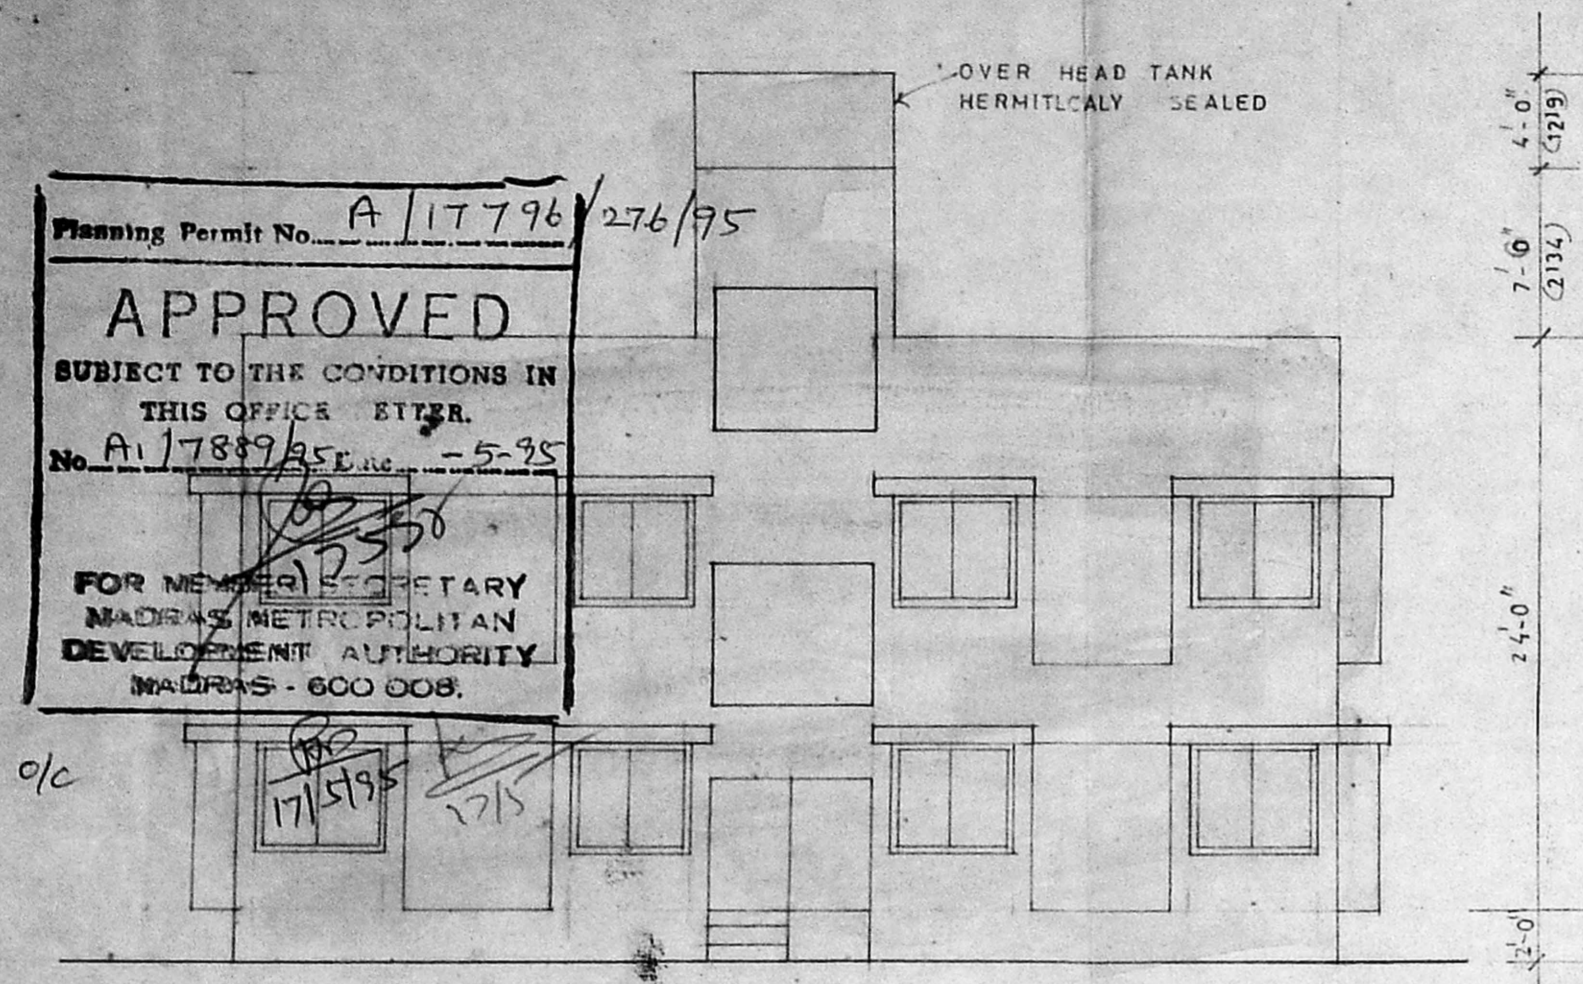 OVER HEAD TANK
HERMITLCALY SEALED
4'-0"
(1219)
7'-6"
(2134)
24'-0"
2'-0"
Planning Permit No. A/17796/276/95
APPROVED
SUBJECT TO THE CONDITIONS IN
THIS OFFICE ETTER.
No A1/7889/95 Date -5-95
FOR MEMBER SECRETARY
MADRAS METROPOLITAN
DEVELOPMENT AUTHORITY
MADRAS - 600 008.
O/C
17/5/95
17/5